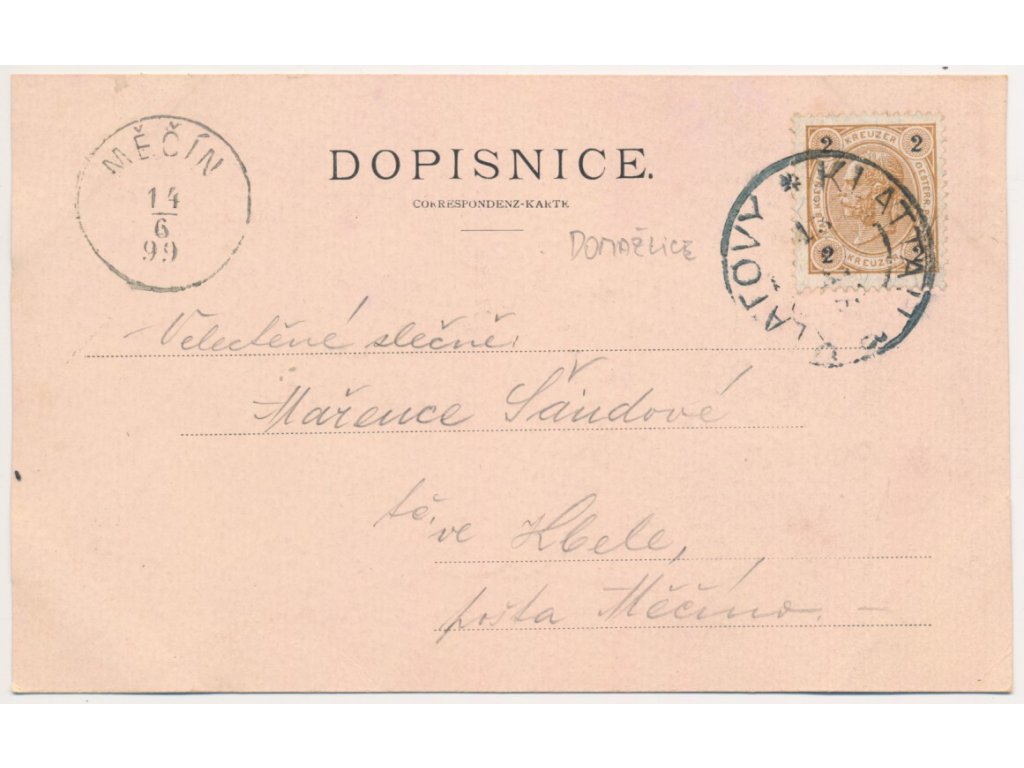 MĚČÍN
14
6
99
DOPISNICE.
CORRESPONDENZ-KARTE
DOMAŽLICE
2 KREUZER 2
OESTERR.
2 KREUZER
KLATTAU
KLATOVY
Velectěné slečně:
Mařence Šandové
tč. ve Kbele,
pošta Měčíno. –